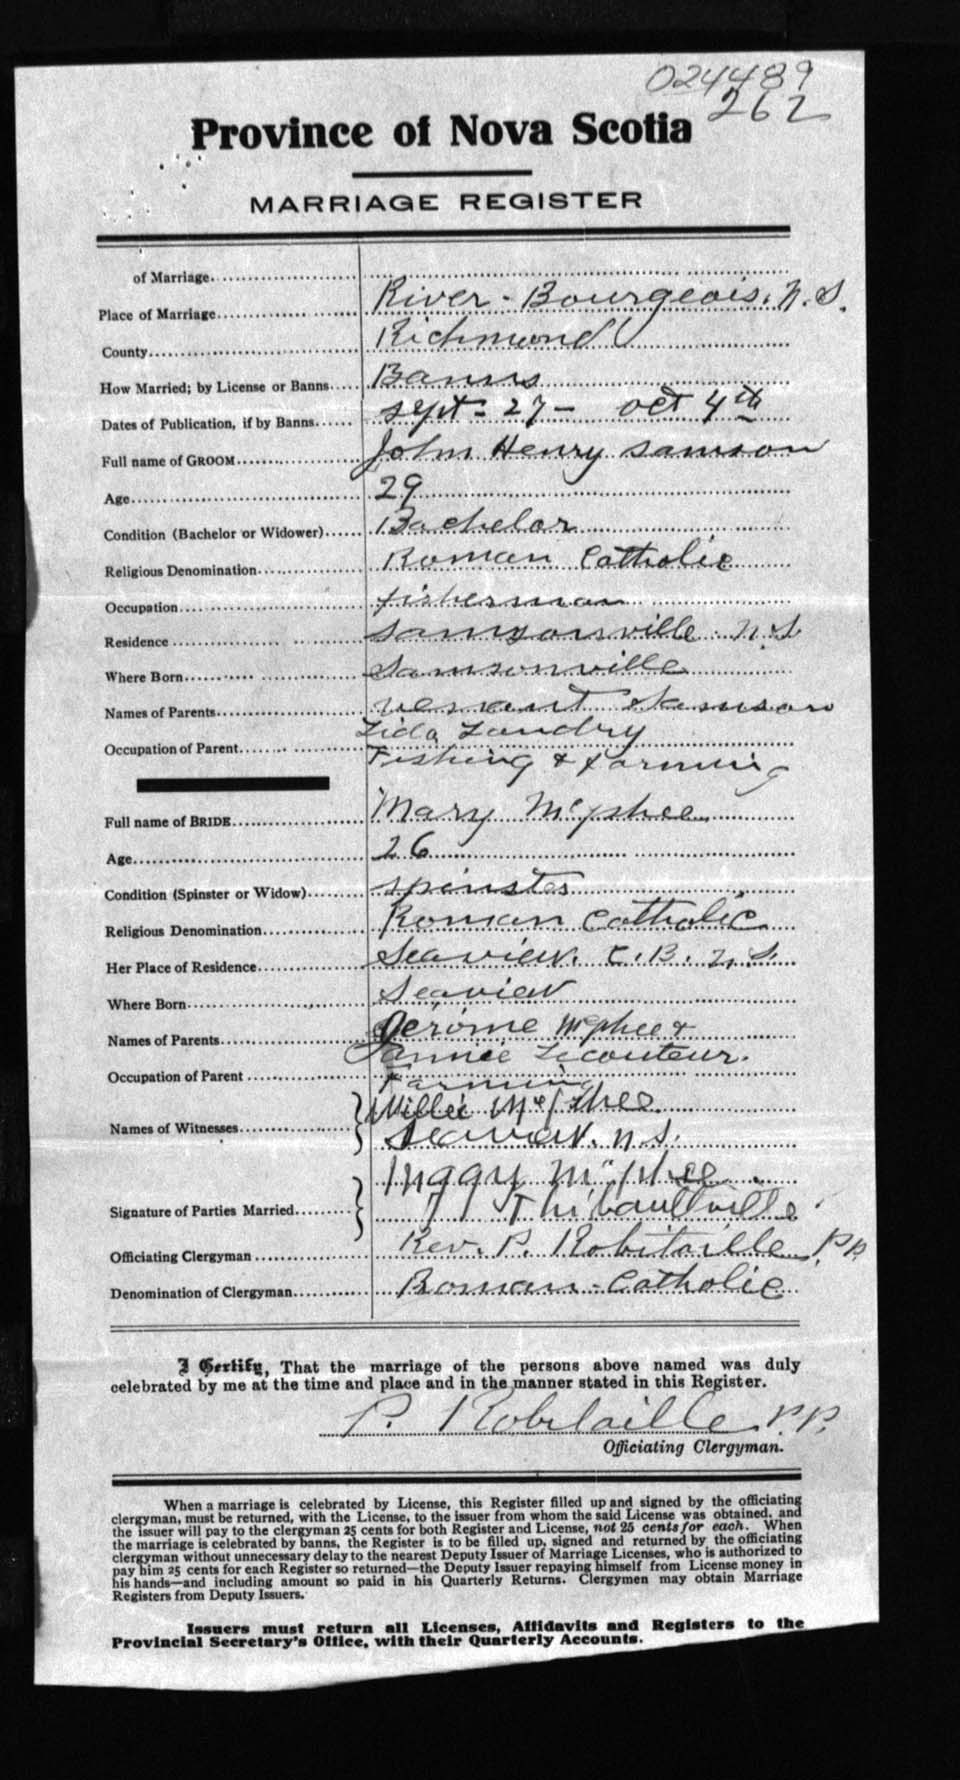 024489
262
Province of Nova Scotia
MARRIAGE REGISTER
of Marriage
Place of Marriage River-Bourgeois, N.S.
County Richmond
How Married; by License or Banns Banns
Dates of Publication, if by Banns Sept - 27 - oct 4th
Full name of GROOM John Henry Samson
Age 29
Condition (Bachelor or Widower) Bachelor
Religious Denomination Roman Catholic
Occupation fisherman
Residence Samsonville N.S.
Where Born Samsonville
Names of Parents Samson
Lida Landry
Occupation of Parent Fishing & farming
Full name of BRIDE Mary McPhee
Age 26
Condition (Spinster or Widow) spinster
Religious Denomination Roman Catholic
Her Place of Residence Seaview. C.B. N.S.
Where Born Seaview
Names of Parents Jérôme McPhee &
Fannie Lecouteur.
Occupation of Parent Farming
Names of Witnesses Willie McPhee
Seaview. N.S.
Maggy McPhee
Signature of Parties Married Thibaultville
Officiating Clergyman Rev. P. Robitaille P.P.
Denomination of Clergyman Roman-Catholic
I Certify, That the marriage of the persons above named was duly
celebrated by me at the time and place and in the manner stated in this Register.
P. Robitaille P.P.
Officiating Clergyman.
When a marriage is celebrated by License, this Register filled up and signed by the officiating
clergyman, must be returned, with the License, to the issuer from whom the said License was obtained, and
the issuer will pay to the clergyman 25 cents for both Register and License, not 25 cents for each. When
the marriage is celebrated by banns, the Register is to be filled up, signed and returned by the officiating
clergyman without unnecessary delay to the nearest Deputy Issuer of Marriage Licenses, who is authorized to
pay him 25 cents for each Register so returned—the Deputy Issuer repaying himself from License money in
his hands—and including amount so paid in his Quarterly Returns. Clergymen may obtain Marriage
Registers from Deputy Issuers.
Issuers must return all Licenses, Affidavits and Registers to the
Provincial Secretary's Office, with their Quarterly Accounts.